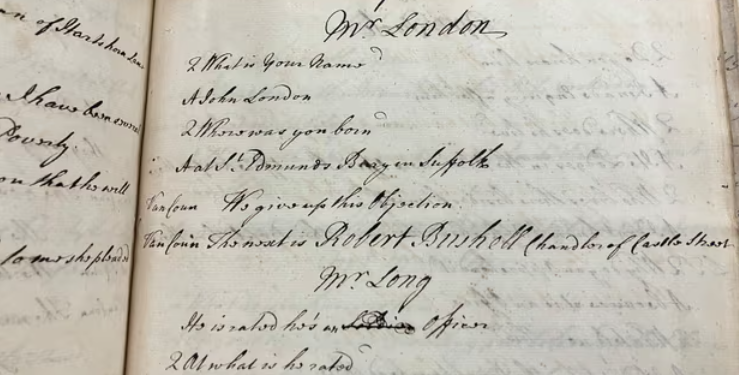 n of Hartshorn Lane
I have been several
Poverty.
on that he will
to me she pleaded
Mr. London
Q What is Your Name
A John London
Q Where was you born
A at St. Edmunds Bury in Suffolk
Van Coun We give up this Objection.
Van Coun The next is Robert Bushell Chandler of Castle Street
Mr. Long
He is rated he's an Officer
Q At what is he rated